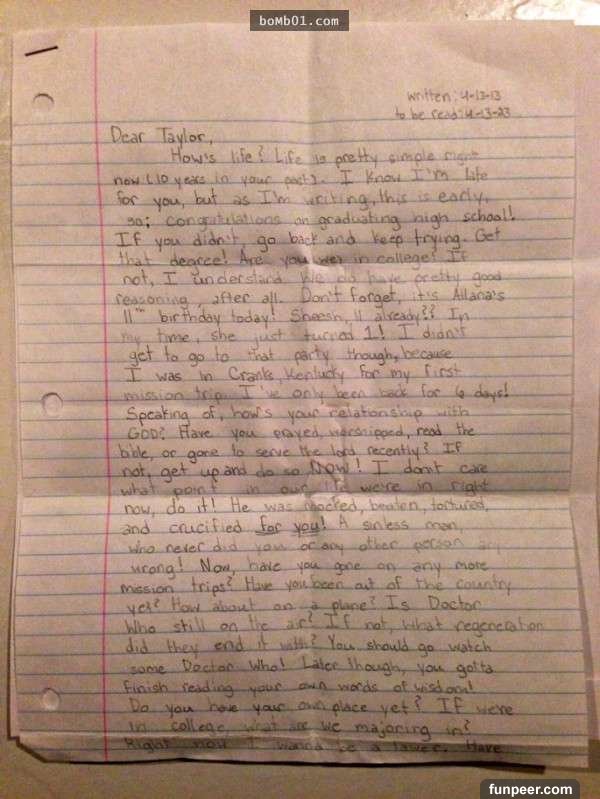 boMb01.com
written: 4-13-13
to be read: 4-13-23
Dear Taylor,
How's life? Life is pretty simple right
now (10 years in your past). I know I'm late
for you, but as I'm writing, this is early,
so; congratulations on graduating high school!
If you didn't, go back and keep trying. Get
that degree! Are you (we) in college? If
not, I understand. We do have pretty good
reasoning, after all. Don't forget, it's Allana's
11th birthday today! Sheesh, 11 already?? In
my time, she just turned 1! I didn't
get to go to that party though, because
I was in Cranks, Kentucky for my first
mission trip. I've only been back for 6 days!
Speaking of, how's your relationship with
GOD? Have you prayed, worshipped, read the
bible, or gone to serve the lord recently? If
not, get up and do so NOW! I don't care
what point in our life we're in right
now, do it! He was mocked, beaten, tortured,
and crucified for you! A sinless man,
who never did you or any other person any
wrong! Now, have you gone on any more
mission trips? Have you been out of the country
yet? How about on a plane? Is Doctor
Who still on the air? If not, what regeneration
did they end it with? You should go watch
some Doctor Who! Later though, you gotta
finish reading your own words of wisdom!
Do you have your own place yet? If we're
in college, what are we majoring in?
Right now I wanna be a lawer. Have
funpeer.com